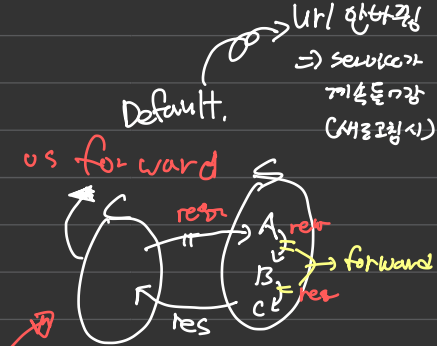 url 안바뀜
=) service가
계속들어감
(새로고침시)
Default.
os forward
C
S
req
A
req
B
forward
req
C
res